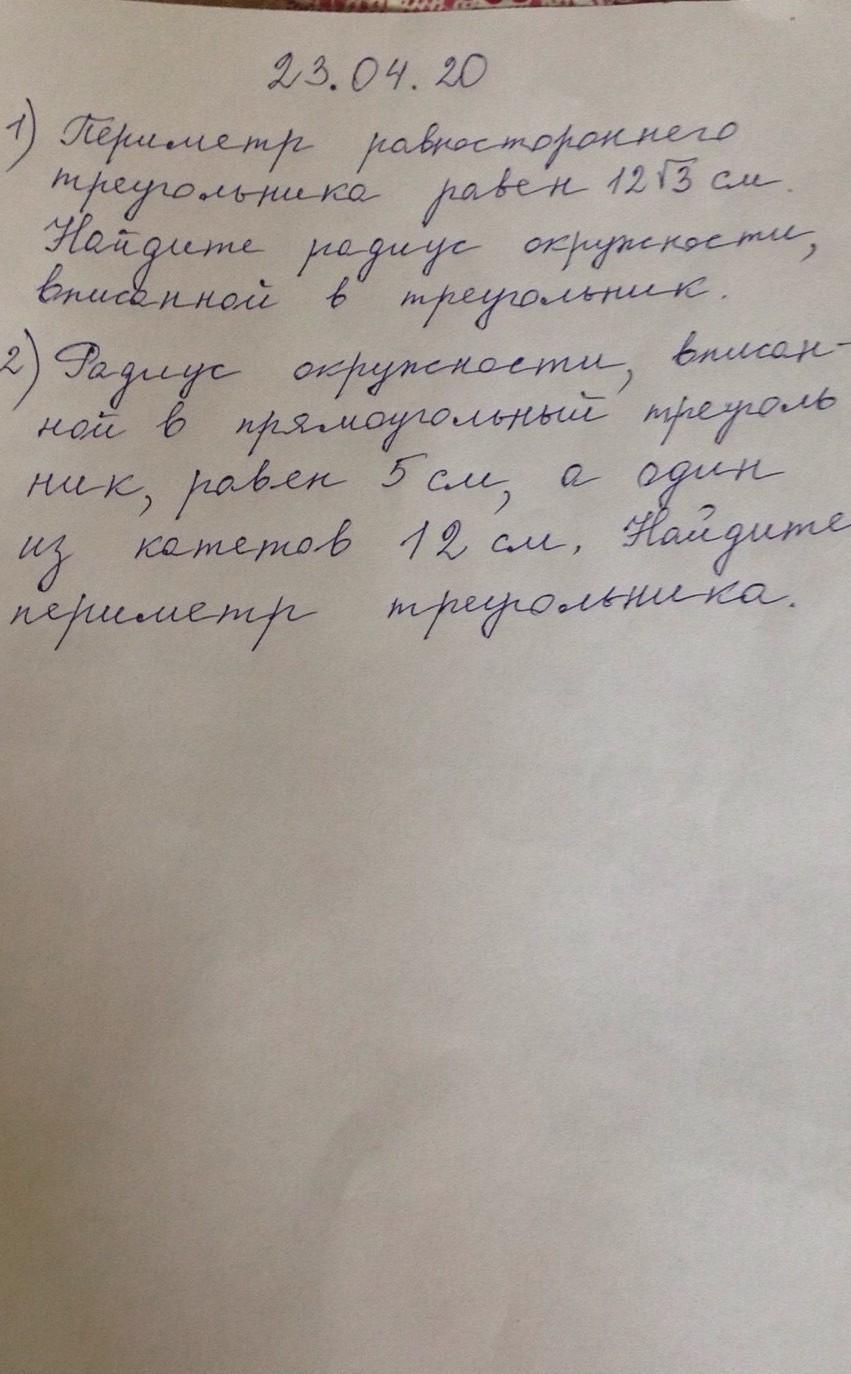 23.04.20
1) Периметр равностороннего
треугольника равен 12√3 см.
Найдите радиус окружности,
вписанной в треугольник.
2) Радиус окружности, вписан-
ной в прямоугольный треуголь
ник, равен 5 см, а один
из катетов 12 см. Найдите
периметр треугольника.